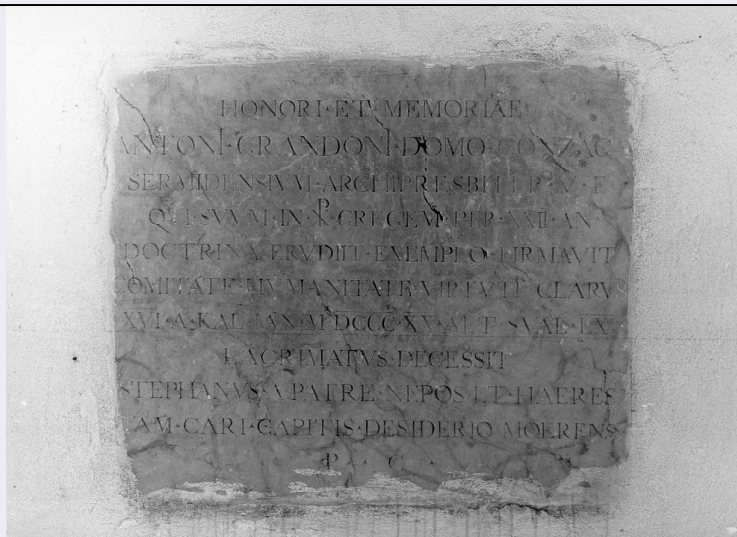 HONORI·ET·MEMORIAE
ANTONI·GRANDONI·DOMO·GONZAG
SERMIDENSIVM·ARCHIPRESBITER·V·F
QVI·SVVM·IN·XP·GREGEM·PER·XXII·AN·
DOCTRINA·ERVDIIT·EXEMPLO·FIRMAVIT
COMITATE·HVMANITATE·VIRTVTE·CLARVS
XVI·A·KAL·IAN·MDCCCXX·AET·SVAE·LX
LACRIMATVS·DECESSIT
STEPHANVS·A·PATRE·NEPOS·ET·HAERES
AM·CARI·CAPITIS·DESIDERIO·MOERENS
P · C ·